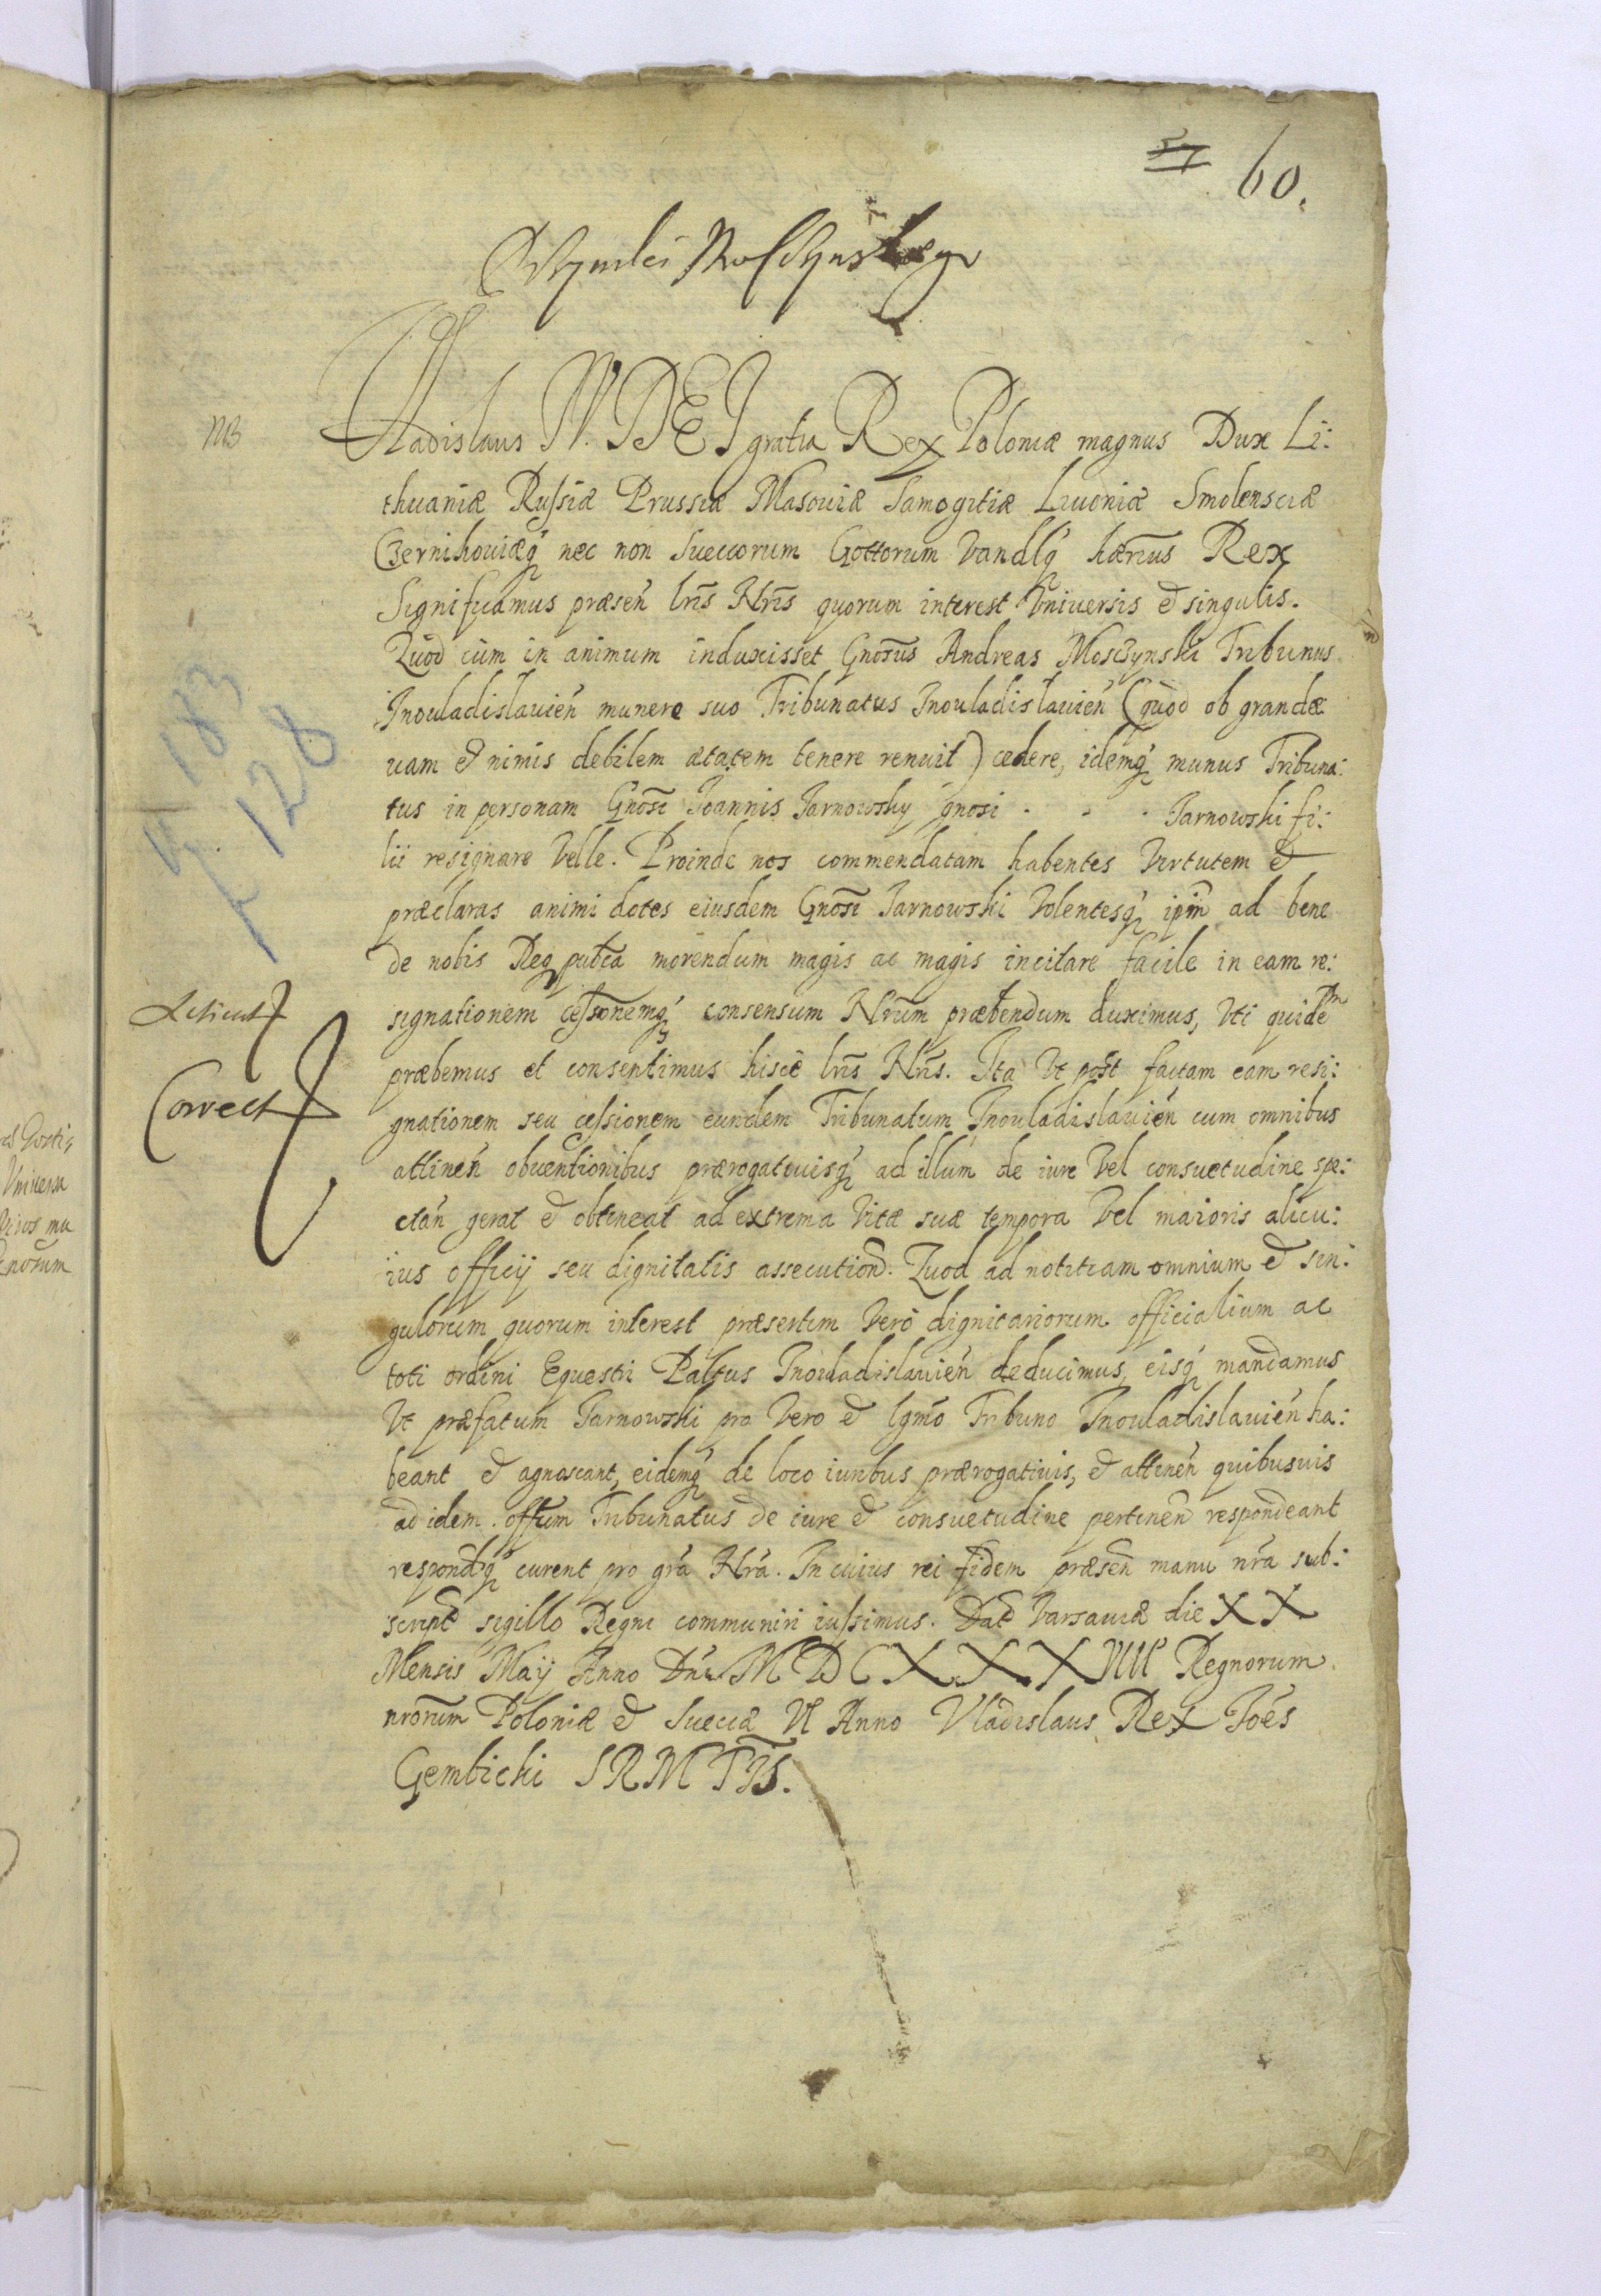 60.
NB
Vladislaus IV. DEI gratia Rex Poloniæ magnus Dux Li:
thuaniæ Russiæ Prussiæ Masoviæ Samogitiæ Livoniæ Smolensciæ
Czernihoviæq́ nec non Sueccorum Gottorum Vandlq́ hærius Rex
Significamus præsen̄ lr̄is Nr̄is quorum interest Vniversis et singulis.
Quod cum in animum induxisset Gnōsus Andreas Mosczynski Tribunus
Inouladislavień munere suo Tribunatus Inouladislavień (quod ob grandæ
uam et nimis debilem ætatem tenere renuit) cedere, idemq́ munus Tribuna:
tus in personam Gnōsi Joannis Jarnowsky gnosi . . . Jarnowski fi:
lii resignare Velle. Proinde nos commendatam habentes Virtutem et
præclaras animi dotes eiusdem Gnōsi Jarnowski Volentesq́ ipm̄ ad bene
de nobis Req pub̄ca merendum magis ac magis incitare facile in eam re:
signationem cessionemq́ consensum Nr̄um præbendum duximus, Vti quidem
præbemus et consentimus hisce lr̄is Nr̄is. Ita Vt post factam eam resi:
gnationem seu cessionem eundem Tribunatum Inouladislavień cum omnibus
attineń obventionibus prærogativisq́ ad illum de iure Vel consuetudine spe:
ctań gerat et obtineat ad extrema Vitæ suæ tempora Vel maioris alicu:
ius officij seu dignitatis assecution̄. Quod ad notitiam omnium et sin:
gulorum quorum interest præsertim Vero dignitariorum officialium ac
toti ordini Equestri Paltus Inouladislavień deducimus, eisq́ mandamus
Vt præfatum Jarnowski pro Vero et lgm̄o Tribuno Inouladislavień ha:
beant et agnoscant, eidemq́ de loco iuribus prærogativis, et attineń quibusvis
ad idem offum Tribunatus de iure et consuetudine pertinen̄ respondeant
respondq́ curent pro gr̄a Nr̄a. In cuius rei fidem præsen̄ manu nr̄a sub:
script sigillo Regni communiri iussimus. Dat Varsaviæ die XX
Mensis Maij Anno Dn̄i MDCXXXVIII Regnorum
nrōrum Poloniæ et Sueciæ VI Anno Vladislaus Rex Joēs
Gembicki SRMTIS.
Correct
183
128